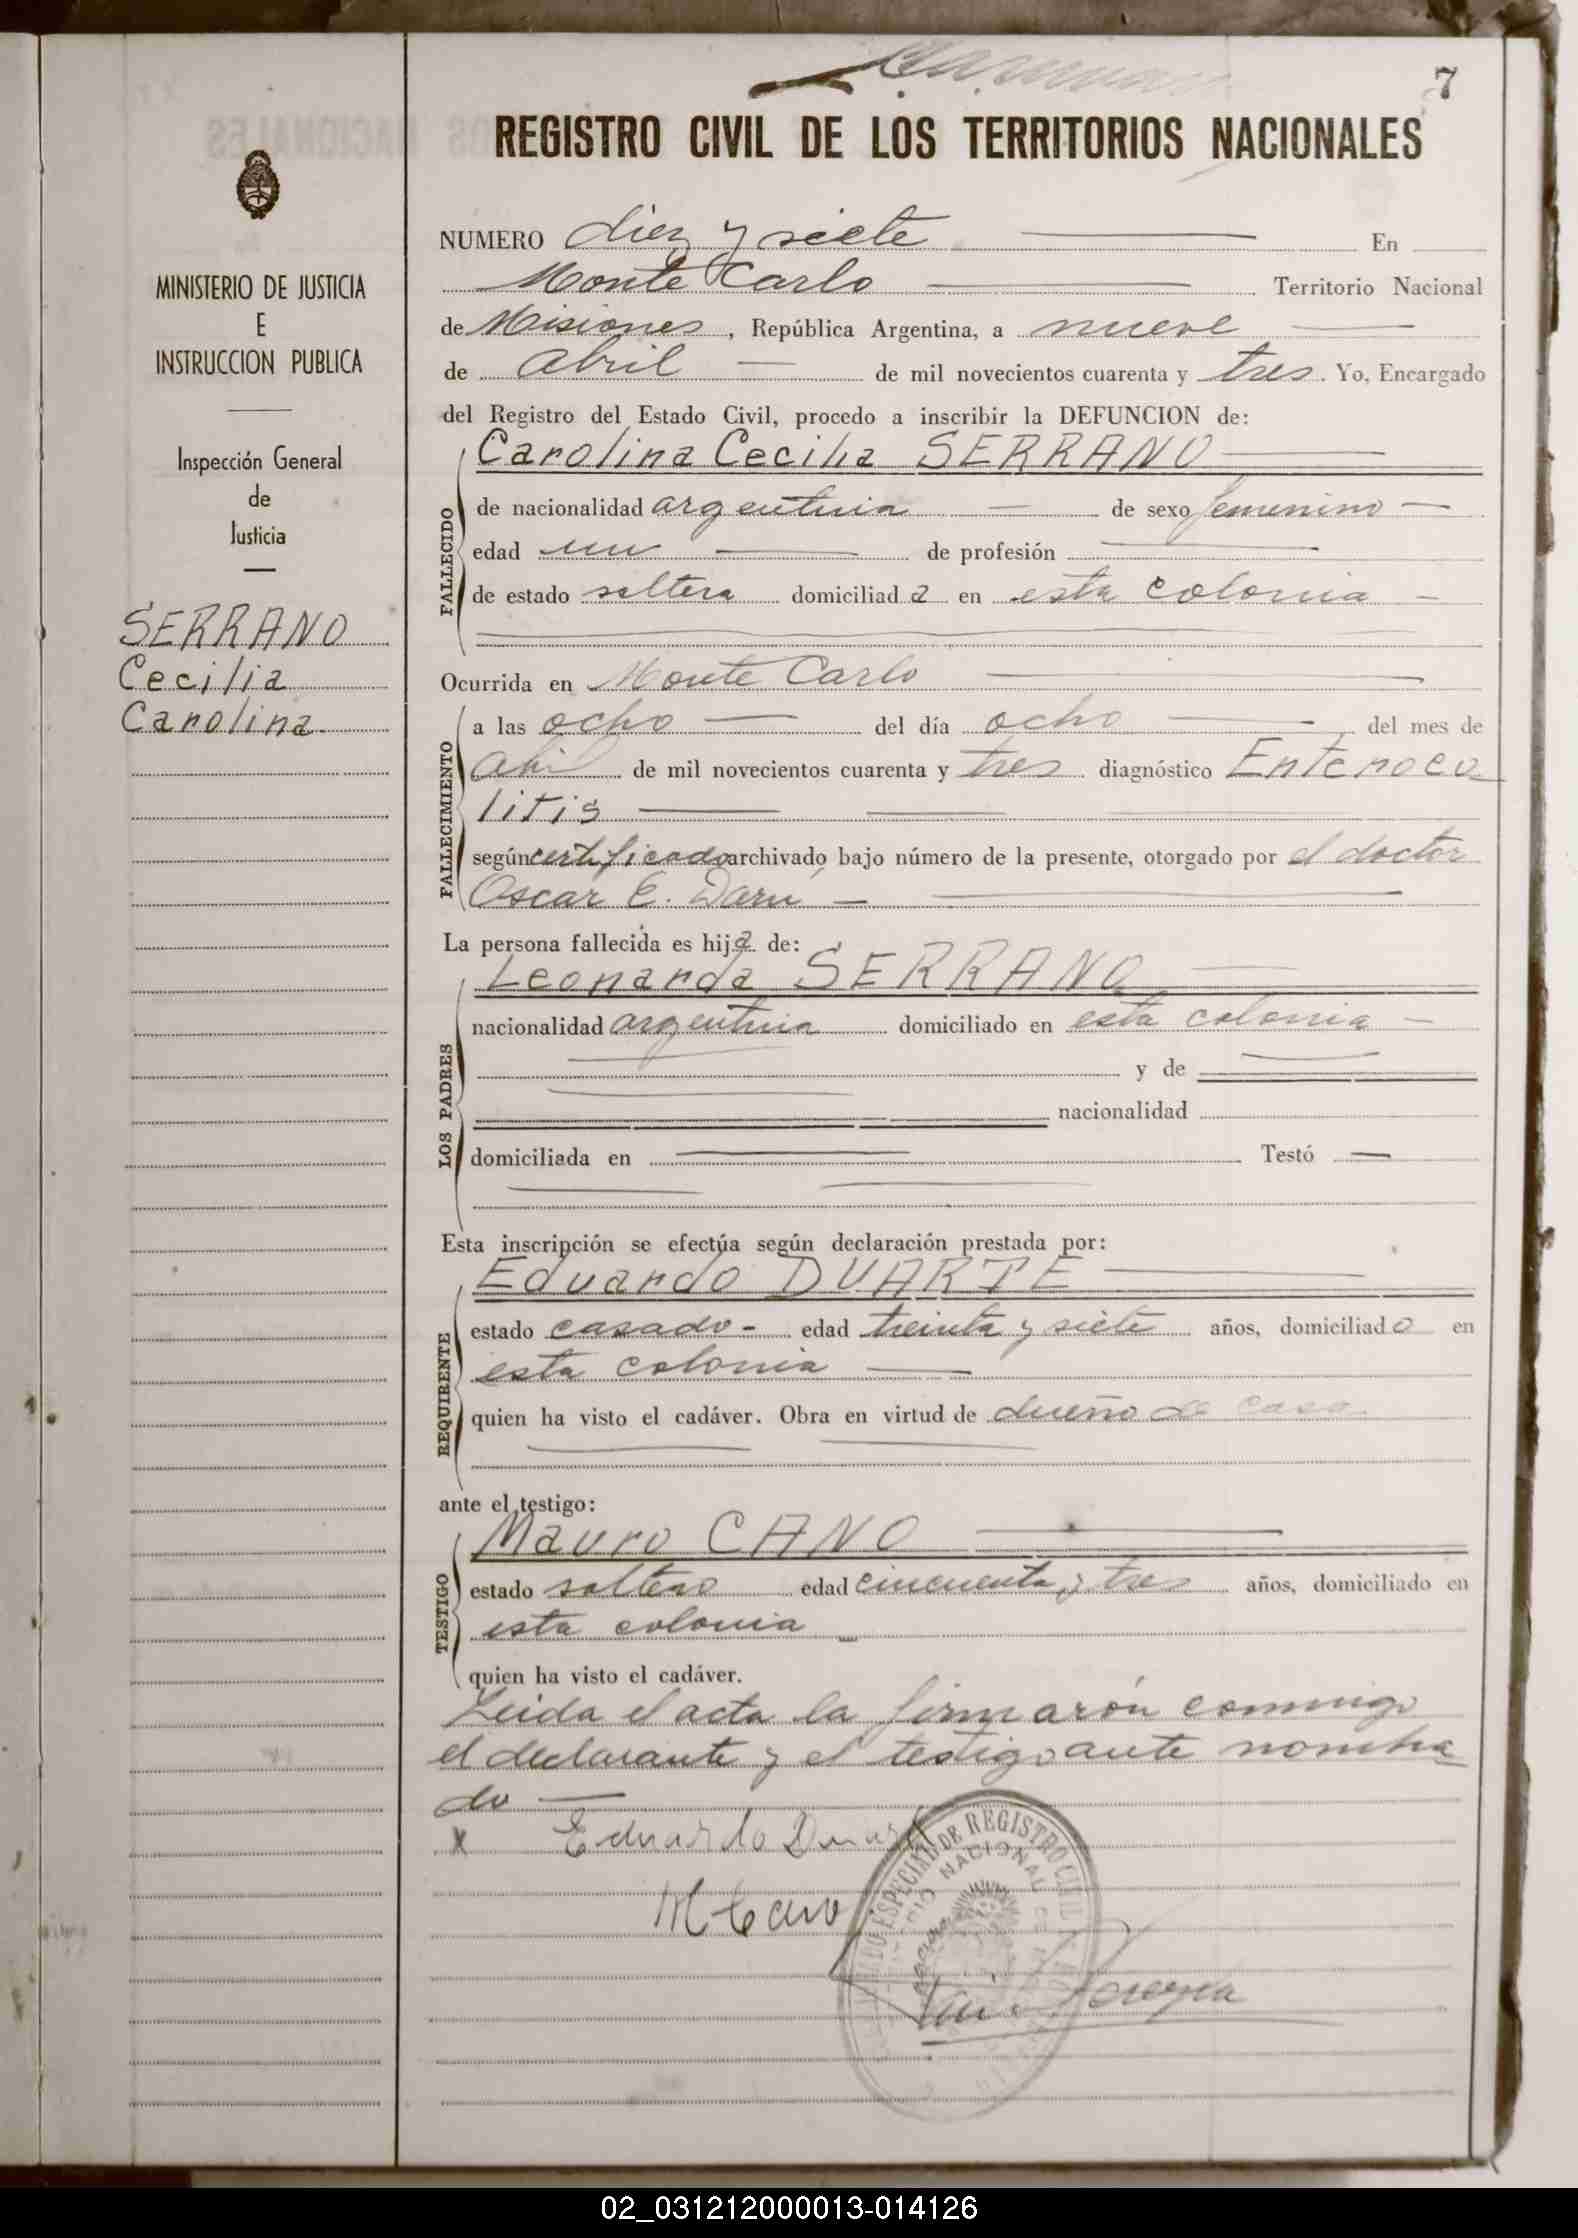 7
REGISTRO CIVIL DE LOS TERRITORIOS NACIONALES
MINISTERIO DE JUSTICIA
E
INSTRUCCION PUBLICA
Inspección General
de
Justicia
SERRANO
Cecilia
Carolina
NUMERO diez y siete En
Monte Carlo Territorio Nacional
de Misiones, República Argentina, a nueve
de abril de mil novecientos cuarenta y tres. Yo, Encargado
del Registro del Estado Civil, procedo a inscribir la DEFUNCION de:
Carolina Cecilia SERRANO
FALLECIDO
de nacionalidad argentina de sexo femenino
edad un de profesión
de estado soltera domiciliada en esta colonia
Ocurrida en Monte Carlo
FALLECIMIENTO
a las ocho del día ocho del mes de
abril de mil novecientos cuarenta y tres diagnóstico Enteroco
litis
según certificado archivado bajo número de la presente, otorgado por el doctor
Oscar E. Darú
La persona fallecida es hija de:
LOS PADRES
Leonarda SERRANO
nacionalidad argentina domiciliado en esta colonia
y de
nacionalidad
domiciliada en Testó
Esta inscripción se efectúa según declaración prestada por:
REQUIRENTE
Eduardo DUARTE
estado casado edad treinta y siete años, domiciliado en
esta colonia
quien ha visto el cadáver. Obra en virtud de dueño de casa
ante el testigo:
TESTIGO
Mauro CANO
estado soltero edad cincuenta y tres años, domiciliado en
esta colonia
quien ha visto el cadáver.
Leida el acta la firmarón conmigo
el declarante y el testigo ante nombra
do
x Eduardo Duarte
M Cano
ESPECIAL DE REGISTRO CIVIL
NACIONAL
Pereyra
02_031212000013-014126